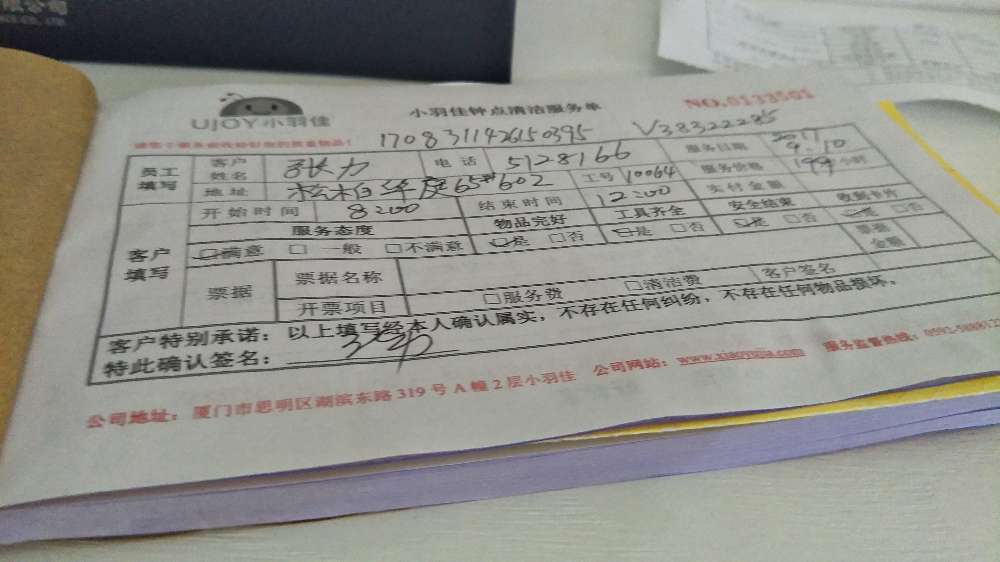 限公司
UJOY小羽佳
小羽佳钟点清洁服务单
NO.0133501
1708311426150395
V38322285
员工填写
客户姓名
张力
电话
5128166
服务日期
9.10
地址
松柏华庭65#602
工号
10064
服务价格
199
小时
客户填写
开始时间
8:00
结束时间
12:00
实付金额
服务态度
物品完好
工具齐全
安全结束
收到卡片
□满意 □一般 □不满意
□是 □否
□是 □否
□是 □否
□是 □否
票据
票据名称
票据金额
开票项目
□服务费 □清洁费
客户签名
客户特别承诺：以上填写经本人确认属实，不存在任何纠纷，不存在任何物品损坏，
特此确认签名：
公司地址：厦门市思明区湖滨东路319号A幢2层小羽佳
公司网站：
服务监督热线：